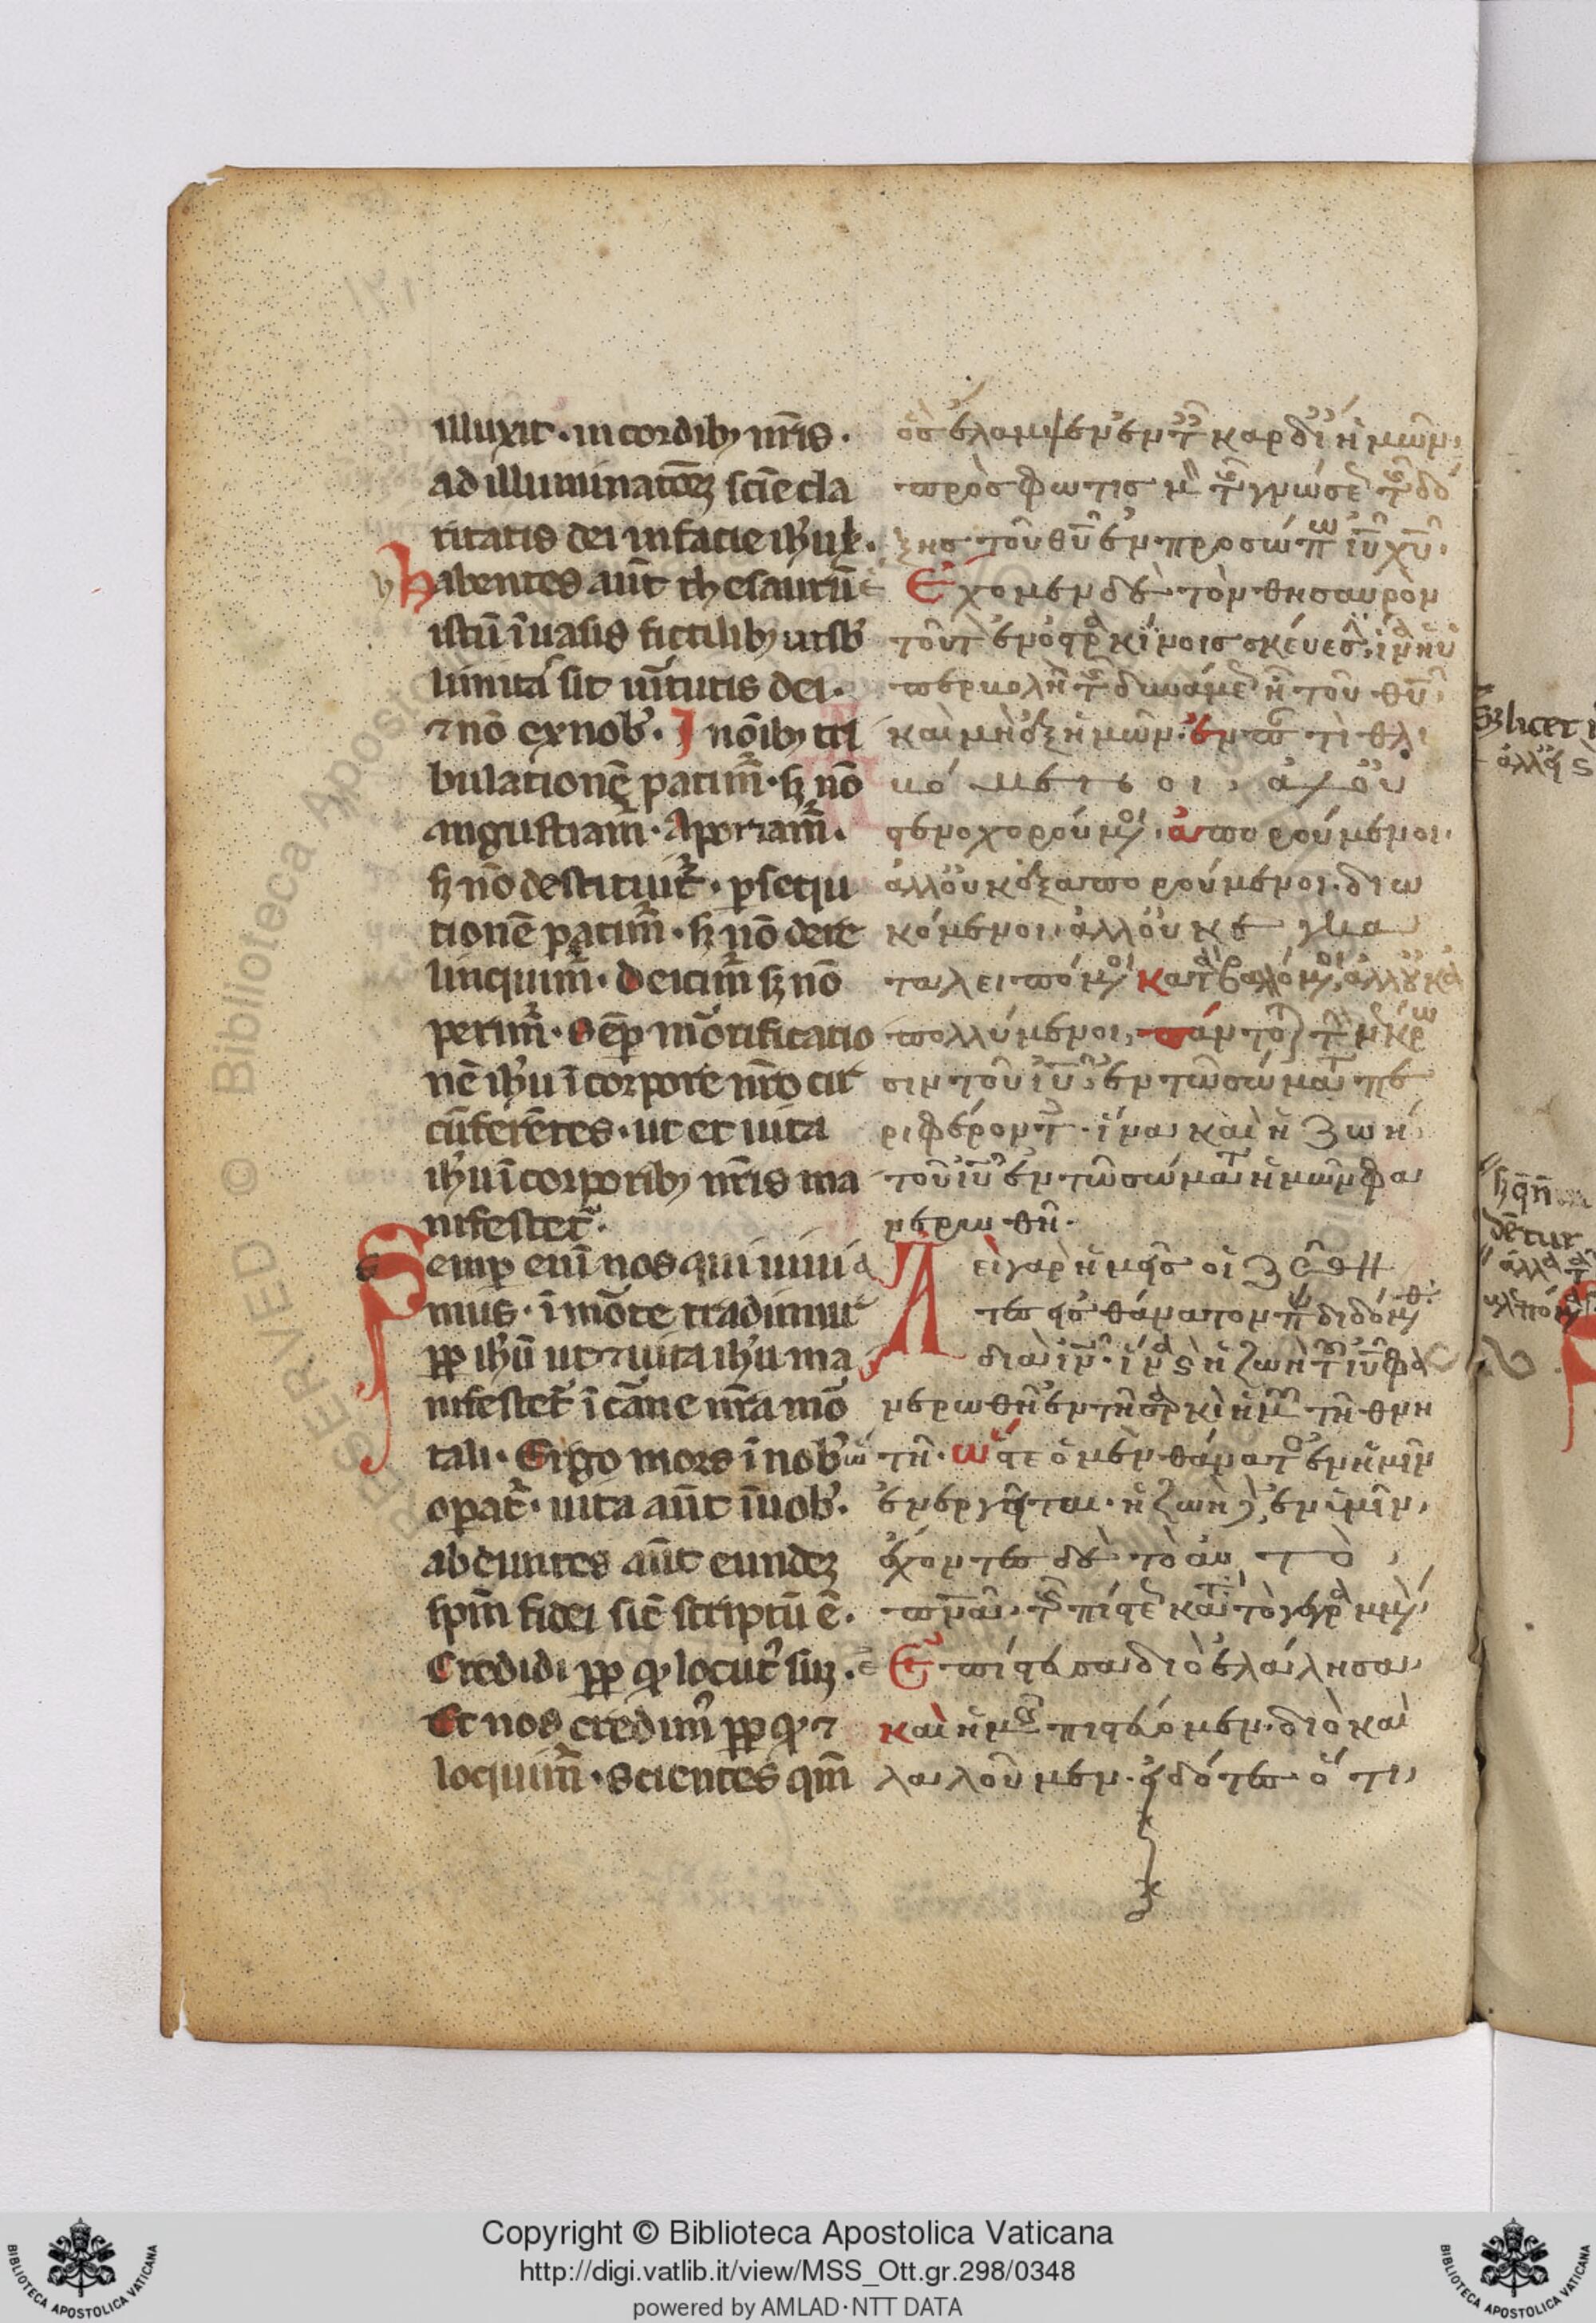 illuxit · in cordib; nr̄is ·
ad illuminatōez sciē cla
ritatis dei in facie ih'u x̄ ·
habentes aūt thesaurū
istū ī uasis fictilib; ut sb'
limitas sit uīrtutis dei ·
⁊ nō ex nob' · J nōib; tri
bulationē patim̄ · sz nō
angustiam̄ · Aporiam̄ ·
sz nō destituim̄ · p̱secu
tionē patim̄ · sz nō dere
linquim̄ · deicim̄ sz nō
perim̄ · Sēp mōrtificatio
nē ih'u ī corpore nr̄o cir
cūferētes · ut et uita
ih'u ī corporib; nr̄is ma
nifestet ·
Semp enī nos qui uiui
mus · ī mōrte tradimur
pp ih'ū ut ⁊ uita ih'u ma
nifestet ī carne nr̄a mor
tali · Ergo mors ī nob'
opat · uita aūt ī uob' ·
abeuntes aūt eundez
spm̄ fidei sic̄ scriptū ē ·
Credidi pp q̄ locut' suz ·
Et nos credim' pp q̄ ⁊
loquim̄ · Scientes qm̄
ὃς ἔλαμψεν ἐν τ καρδί ἡμῶν·
πρὸς φωτισμ τ γνώσε τ δό
ξης τοῦ θῦ ἐν προσώπω ἰῦ χῦ·
Ἔχομεν δὲ τὸν θησαυρὸν
τοῦτ ἐν ὀστρακίνοις σκεύεσ, ἵνα ἡ ὑ
περβολὴ τ δυνάμε ἦ τοῦ θῦ,
καὶ μὴ ἐξ ἡμῶν· ἐν π τὶ θλι
βό μενοι, ἀλλ οὐ
στενοχορούμ, ἀπορούμενοι·
ἀλλ οὐκ ἐξαπορούμενοι· διω
κόμενοι· ἀλλ οὐκ ἐγκα
ταλειπόμ καταβαλόμ, ἀλλ οὐκ ἀ
πολλύμενοι, πάντοτ τ νέκρω
σιν τοῦ ἰῦ ἐν τῶ σώματ πε
ριφέροντ· ἵνα καὶ ἡ ζωὴ
τοῦ ἰῦ ἐν τῶ σώματ ἡμῶν φα
νερωθῆ·
Ἀεὶ γὰρ ἡμεῖς οἱ ζῶν
τες εἰς θάνατον π διδόμ
διὰ ἰν· ἵνα ϗ ἡ ζωὴ τ ἰῦ φα
νερωθῆ ἐν τῆ σαρκὶ ἡμ τῆ θνη
τῆ· ὥστε ὁ μὲν θάνατος ἐν ἡμῖν
ἐνεργεῖται· ἡ ζωὴ δ, ἐν ὑμῖν,
ἔχοντες δὲ τὸ αυ τὸ
πνᾶ· τ πίστε κατ τὸ γεγραμμ
Ἐπίστευσα διὸ ἐλάλησα
καὶ ἡμ πιστεύομεν· διὸ καὶ
λαλοῦμεν· εἰδότες ὅτι
sz licet
Copyright © Biblioteca Apostolica Vaticana
http://digi.vatlib.it/view/MSS_Ott.gr.298/0348
powered by AMLAD·NTT DATA